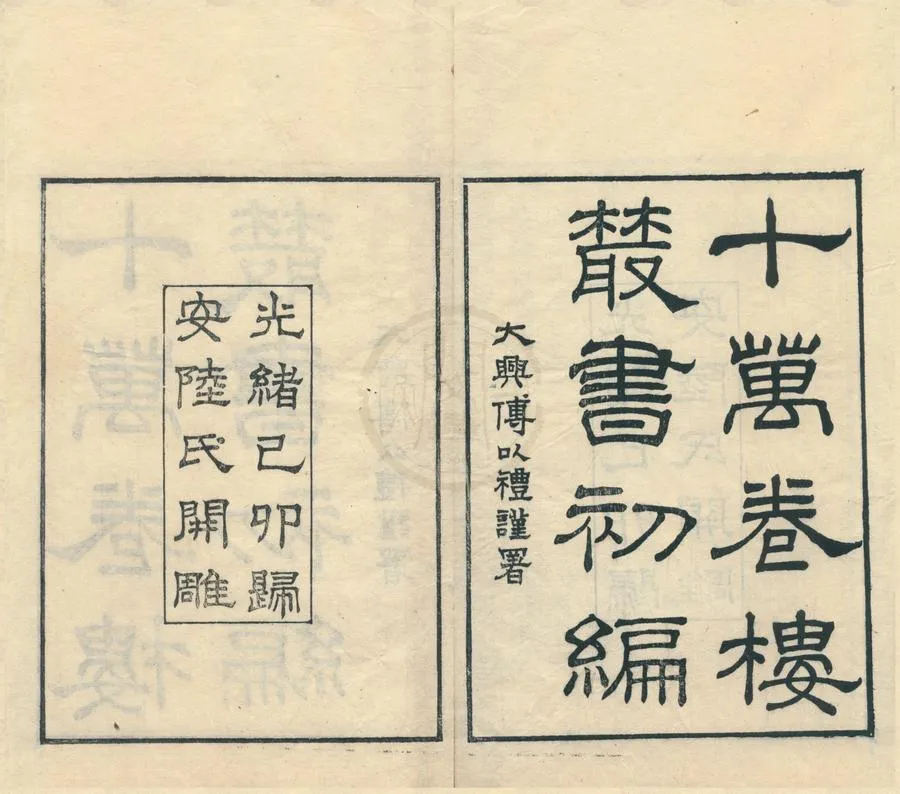 十萬卷樓
叢書初編
大興傅以禮謹署
光緒己卯歸
安陸氏開雕